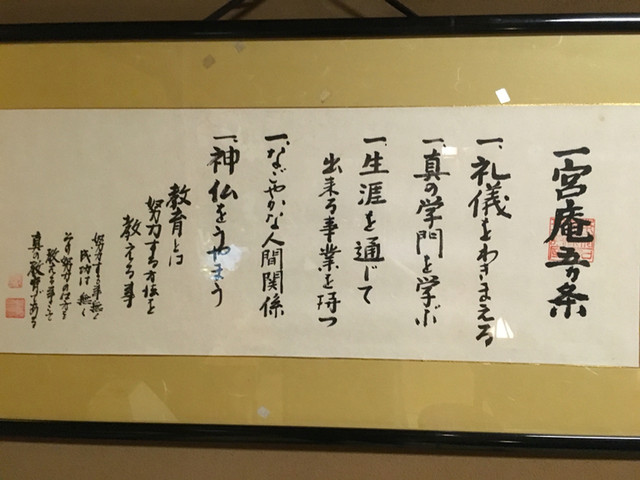 一宮庵五ヵ条
一、礼儀をわきまえる
一、真の学門を学ぶ
一、生涯を通じて
出来る事業を持つ
一、なごやかな人間関係
一、神仏をうやまう
教育とは
努力する方法を
教える事
努力する事無く
成功は無く